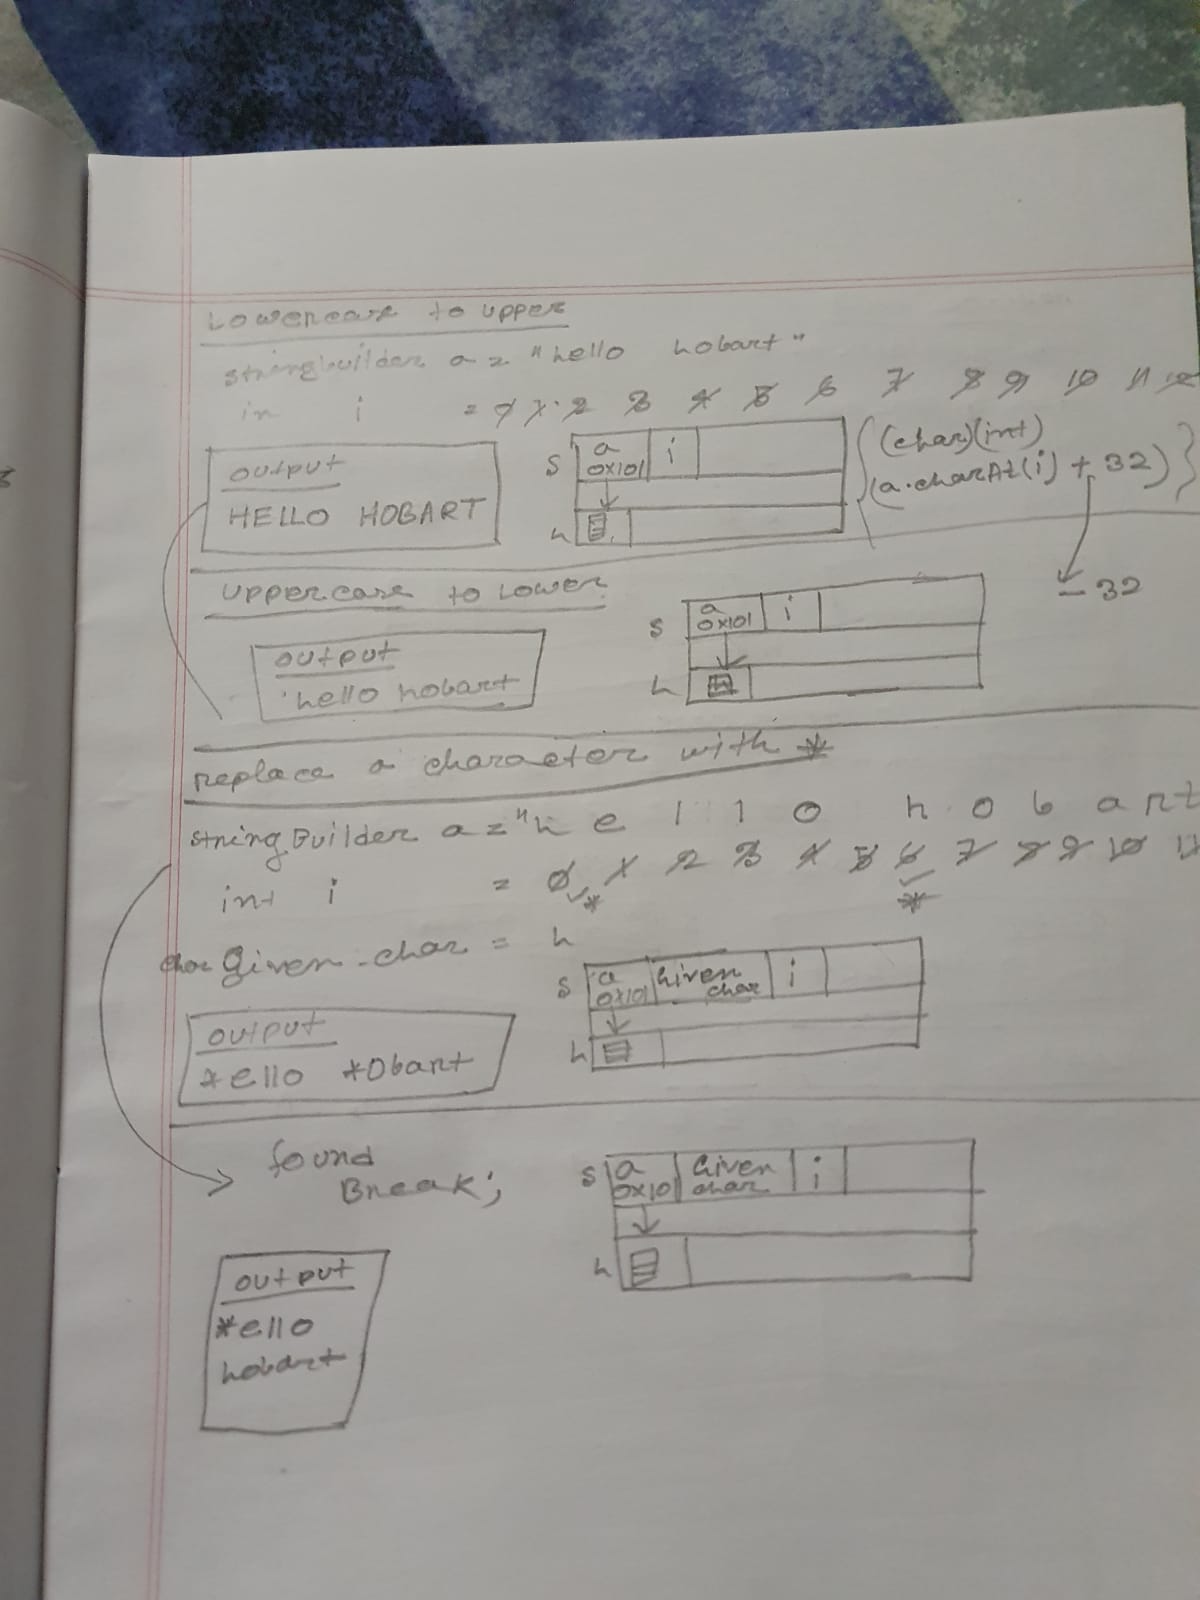 Lowercase to upper
stringbuilder a = "hello hobart"
in i = 0 1 2 3 4 5 6 7 8 9 10 11 12
output
HELLO HOBART
S a 0x101 i
h
(char)(int)
(a.charAt(i) + 32)
- 32
uppercase to Lower
output
'hello hobart
S a 0x101 i
h
replace a character with *
string Builder a = "h e l l o h o b a r t
int i = 0 1 2 3 4 5 6 7 8 9 10 11
* *
char Given-char = h
output
*ello *obart
S a 0x101 Given char i
h
found
Break;
S a 0x101 Given char i
h
output
*ello
hobart